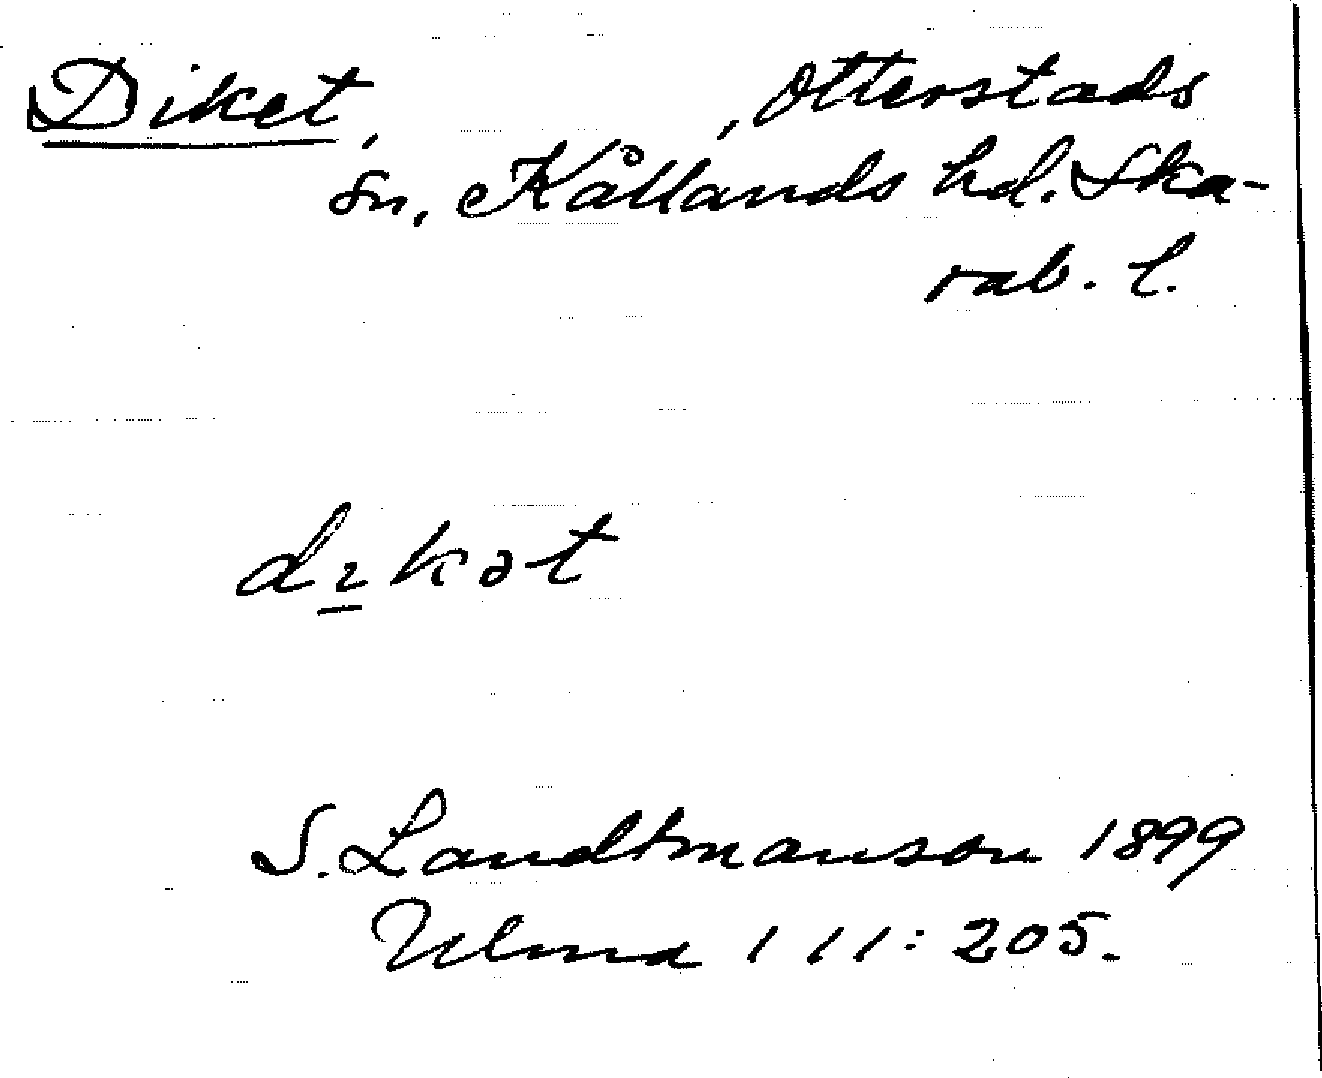 Diket, , Otterstads
sn, Kållands hd. Ska-
rab. l.
dɩkət
S. Landtmanson 1899
Ulma 111:205.